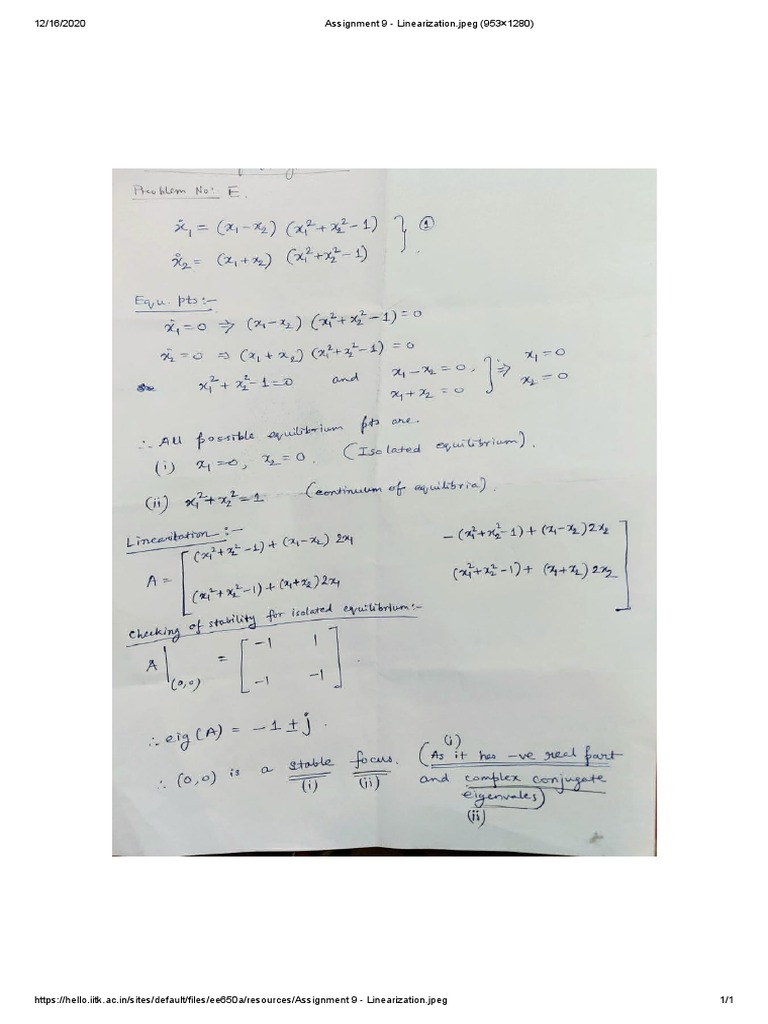 12/16/2020 Assignment 9 - Linearization.jpeg (953×1280)
Problem No: E.
ẋ₁ = (x₁ - x₂) (x₁² + x₂² - 1) } ①
ẋ₂ = (x₁ + x₂) (x₁² + x₂² - 1)
Equ. pts:-
ẋ₁ = 0 ⇒ (x₁ - x₂) (x₁² + x₂² - 1) = 0
ẋ₂ = 0 ⇒ (x₁ + x₂) (x₁² + x₂² - 1) = 0
x₁² + x₂² - 1 = 0 and x₁ - x₂ = 0, } ⇒ x₁ = 0
x₁ + x₂ = 0 x₂ = 0
∴ All possible equilibrium pts are.
(i) x₁ = 0, x₂ = 0. (Isolated equilibrium).
(ii) x₁² + x₂² = 1 (continuum of equilibria).
Linearitation :-
A = [ (x₁² + x₂² - 1) + (x₁ - x₂) 2x₁ -(x₁² + x₂² - 1) + (x₁ - x₂) 2x₂
(x₁² + x₂² - 1) + (x₁ + x₂) 2x₁ (x₁² + x₂² - 1) + (x₁ + x₂) 2x₂ ]
Checking of stability for isolated equilibrium:-
A |(0,0) = [ -1 1
-1 -1 ].
∴ eig(A) = -1 ± j.
∴ (0,0) is a stable focus. (As it has -ve real part
(i) (ii) (i)
and complex conjugate
eigenvales)
(ii)
https://hello.iitk.ac.in/sites/default/files/ee650a/resources/Assignment 9 - Linearization.jpeg 1/1